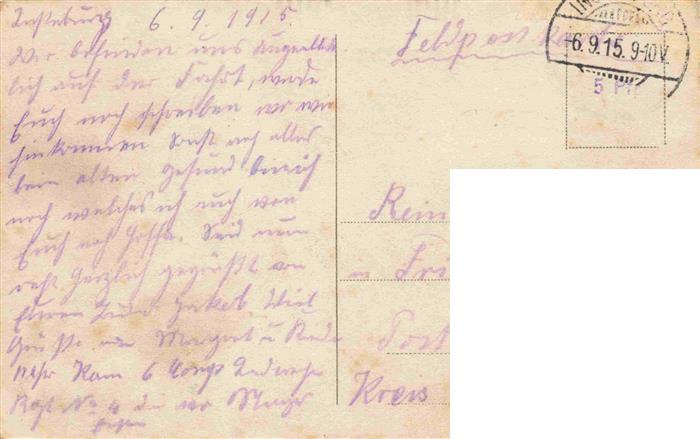 Insterburg 6.9.1915.
Wir befinden uns augenblick
lich auf der Fahrt, werde
Euch noch schreiben wo wir
hinkommen Sonst noch alles
beim alten. Gesund bin ich
noch welches ich auch von
Euch noch hoffe. Seid nun
recht herzlich gegrüßt von
Eurem Jakob. Viel
Grüße an Margret u
Kom 6 Landwehr
Regt No 4
Feldpostkarte
6.9.15. 9-10V.
5 Pf
Rein
in Fri
Post
Kreis